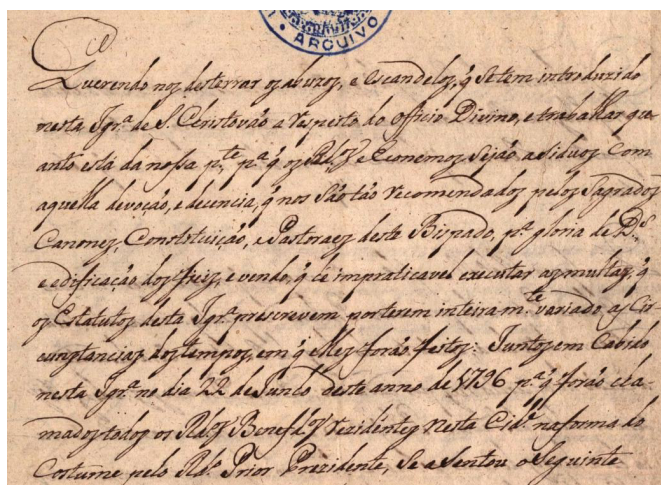 ARQUIVO
Querendo nos desterrar os abuzos, e Escandelos, q̃ Se tem introduzido
nesta Igr.ª de S. Christovão a respeito do Officio Divino, e trabalhar qu-
anto está da nossa p.te p.ª q̃ os e Econemos Sejão asiduos Com
aquella devoção, e decencia, q̃ nos São tão recomendados pelos Sagrados
Canones, Constituição, e Pastoraes deste Bispado, p.ª gloria de D.s
e edificação dos fieis, e vendo, q̃ hé impraticavel executar as multas, q̃
os Estatutos desta Igr.ª prescrevem por terem inteiram.te variado as Cir
cunstancias dos tempos, em q̃ elles forão feitos: Juntos em Cabido
nesta Igr.ª no dia 22 de Junho deste anno de 1796 p.ª q̃ forão cha-
mados todos os Rd.os Benef.dos rezidentes nesta Cid.e na forma do
Costume pelo Rd.o Prior Prezidente, Se asentou o Seguinte